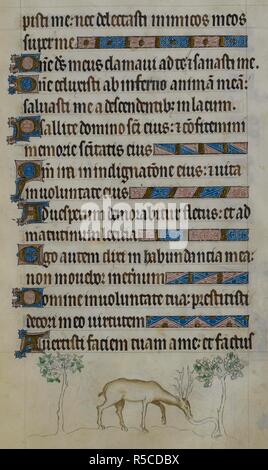 pisti me: nec delectasti inimicos meos
super me.
Dñe ds meus clamaui ad te ⁊ sanasti me.
Dñe eduxisti ab inferno animā meā:
saluasti me a descendentibȝ in lacum.
Psallite domino sc̄i eius: ⁊ confitemini
memorie sc̄itatis eius
Qm̄ ira in indignatōne eius: ⁊ uita
in uoluntate eius
Ad uesperum demorabitur fletus: et ad
matutinum leticia
Ego autem dixi in habundancia mea:
non mouebor in et̄num
Domine in uoluntate tua: prestitisti
decori meo uirtutem
Auertisti faciem tuam a me: et factus
alamy
alamy
Image ID: R5CDBX
www.alamy.com